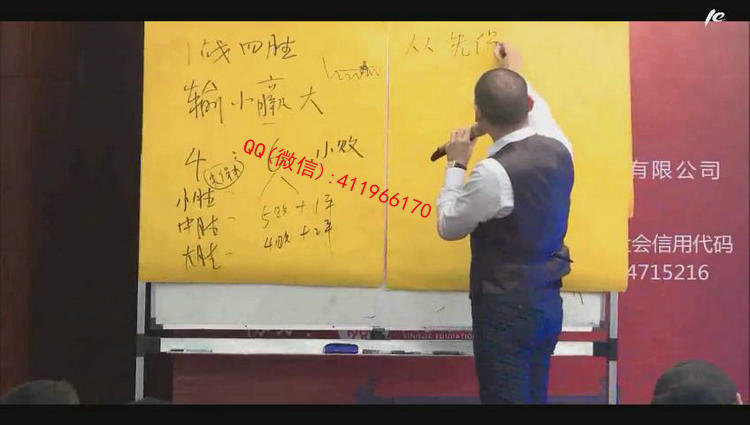 1战四胜
输小赢大
4：6 小败
小胜
中胜 5败+1平
大胜 4败+2平
从 先保
QQ(微信):411966170
有限公司
会信用代码
4715216